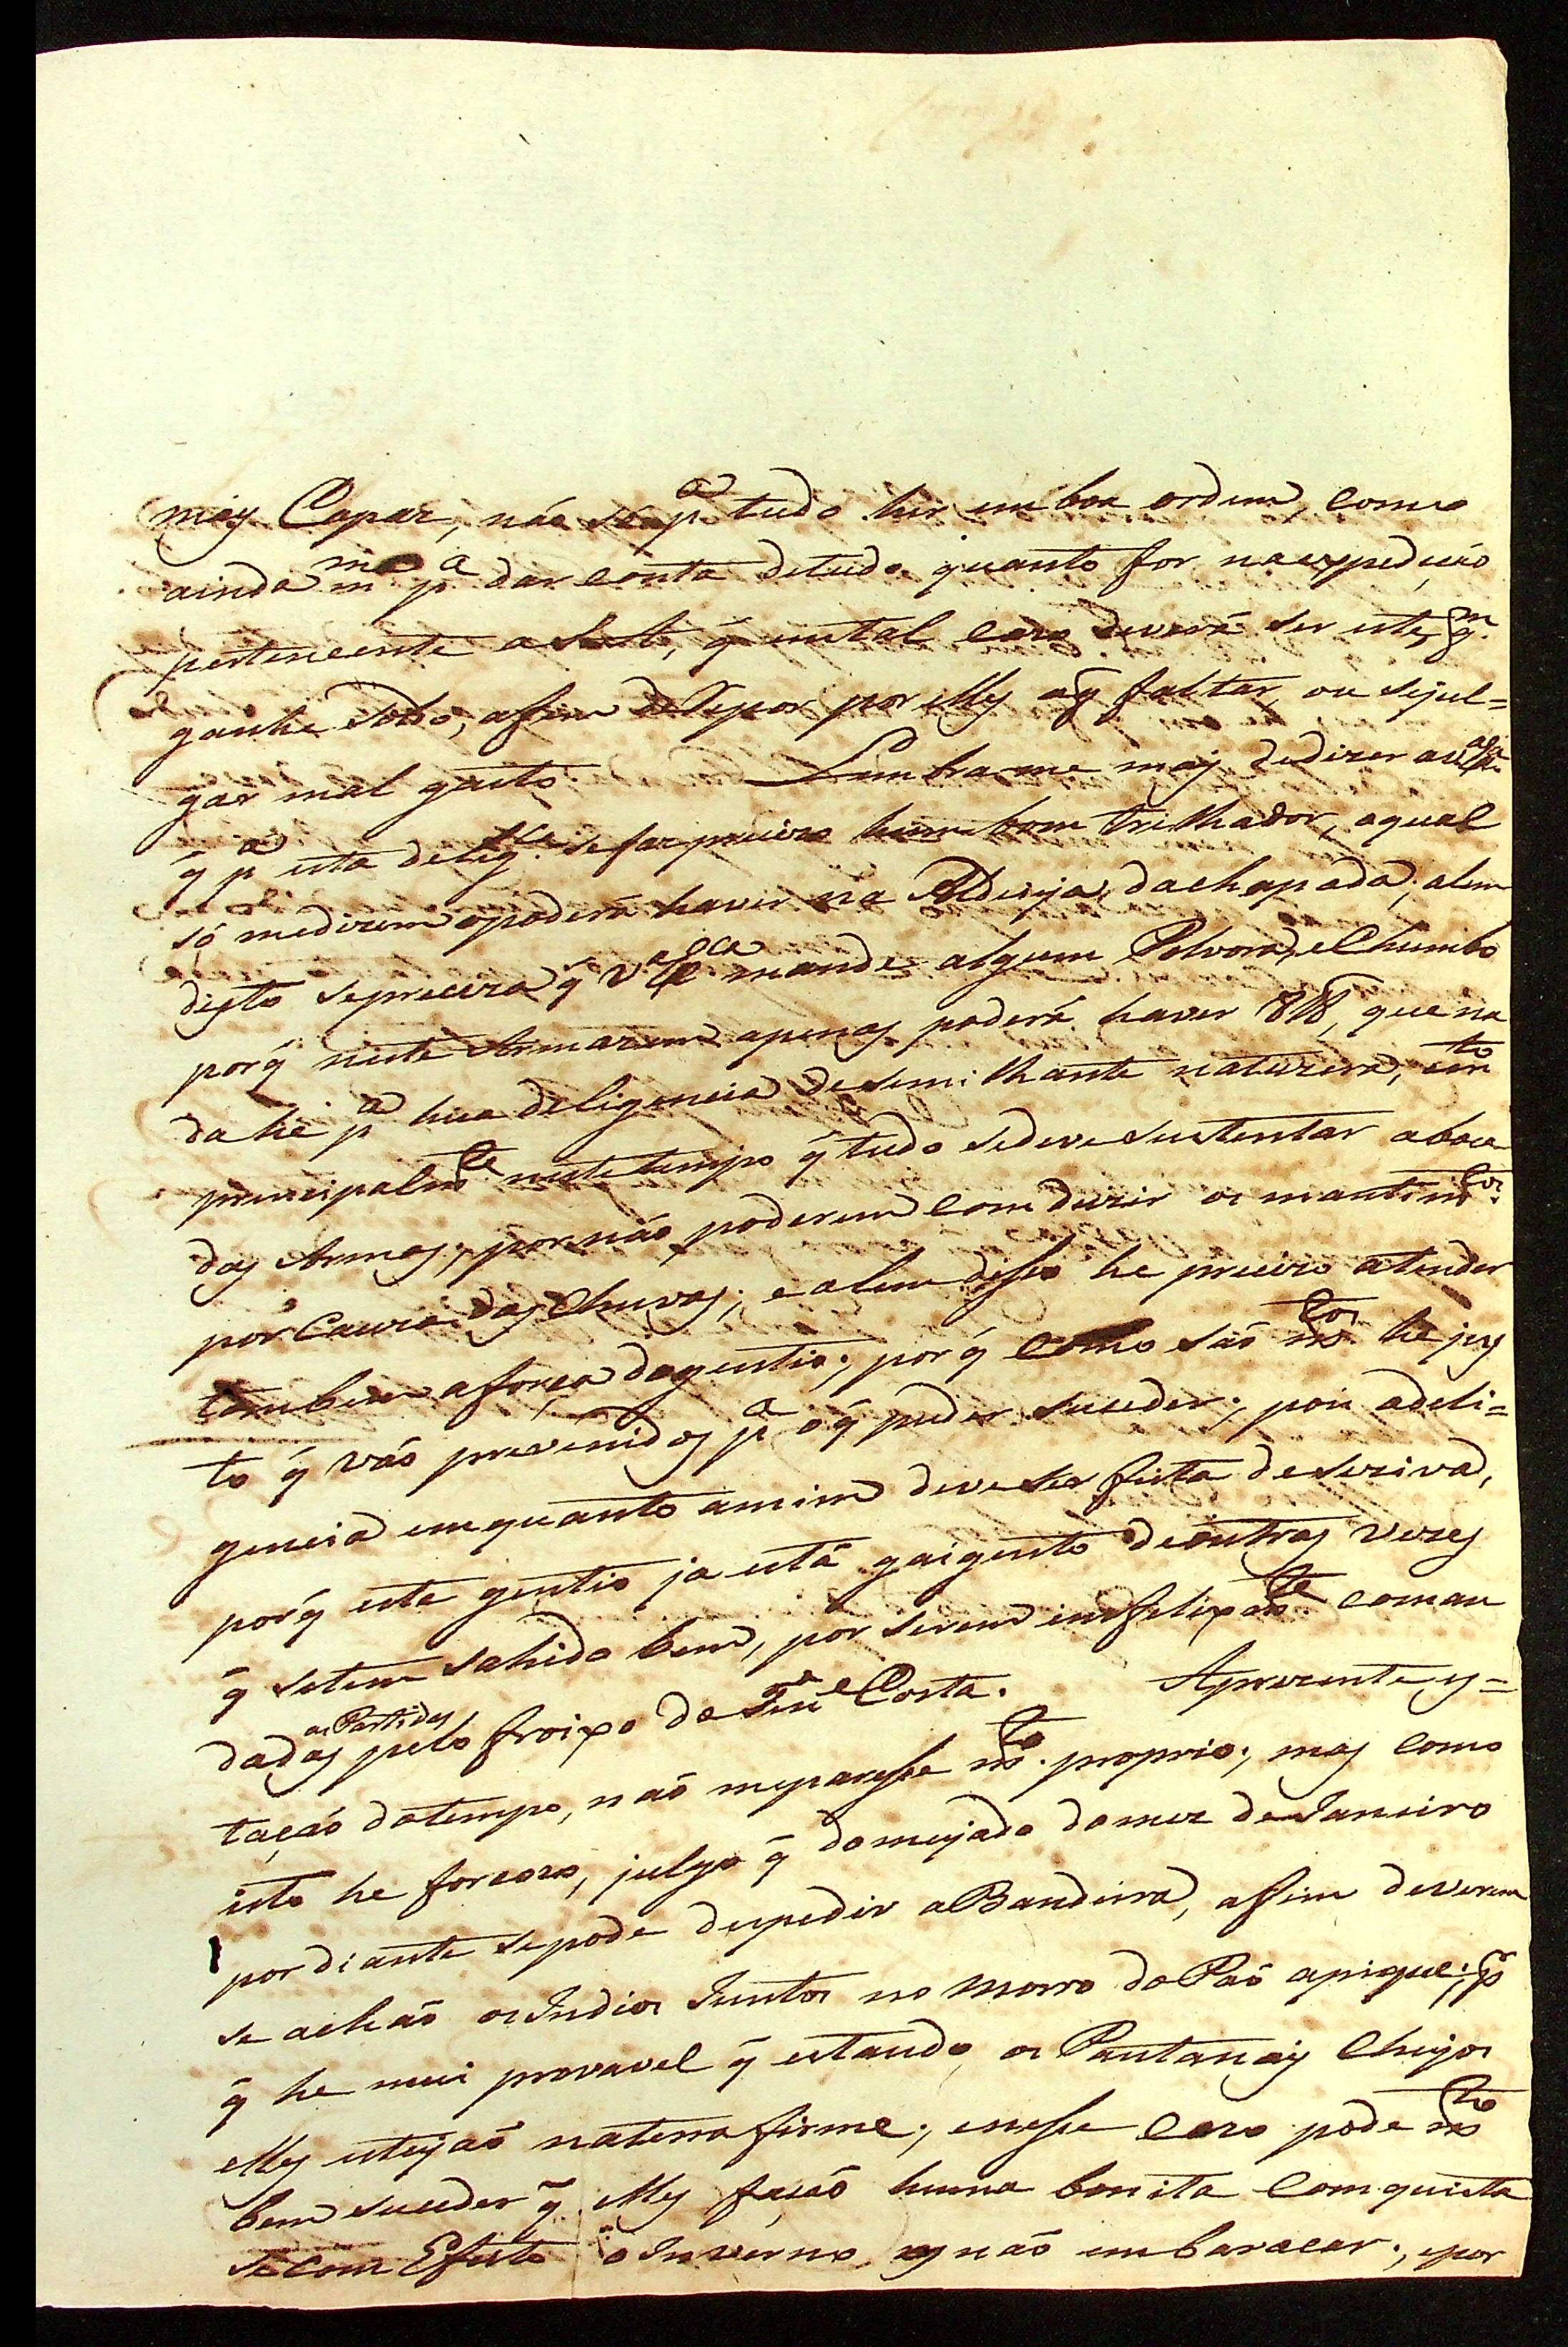 may Capaz, não só pª tudo hir em boa ordem, como
ainda mmo pª dar conta detudo quanto for na expedição
pertencente a S, q̃ em tal cazo deverá ser este, qm
ganhe Soldo, afim de repor por elles oq̃ faltar, ou sejul=
gar mal gasto. Lembrame maj dedizer a VSª
q̃ pª esta deligca sefaz precizo hum bom trilhador, aqual
só medizem opoderá haver na Aldeya, dachapada; alem
disto seprecisa q̃ VSª mande algum Polvora, eChumbo
porq̃ neste Armazem apenas poderá haver 8 lb, que na
da he pª hua deligencia desemilhante natureza, e
principalmte nestetempo q̃ tudo sedeve sustentar aboca
das Armas, por não poderem comduzir os mantimtos
por Cauza das Chuvas; e alem disso he precizo atender
tambem aforça dogentio; por q̃ como são mtos he jus
to q̃ vão prevenidos pª oq̃ poder suceder; pois adeli=
gencia emquanto amim deve ser feita desuzivad,
porq̃ este gentio ja está gaigento deoutras vezes
q̃ setem sahido bem, por serem imfelizmte coman
dadas as Partidas pelo froixo do Tne Costa. Aprezentey=
tação dotempo, não mepareçe mto proprio; mas como
isto he forcozo, julgo q̃ domeyado domez deJaneiro
por diante sepode despedir aBandeira, assim deverem
se achão os Indios Juntos no Morro do Pão apique; p
q̃ he mui provavel q̃ estando os Pantanáis Cheyos
elles estejão naterra firme; enesse Cazo pode mto
bem suceder q̃ elles fação huma bonita Comquista
secom Efeito oInverno os não embaracar; epor